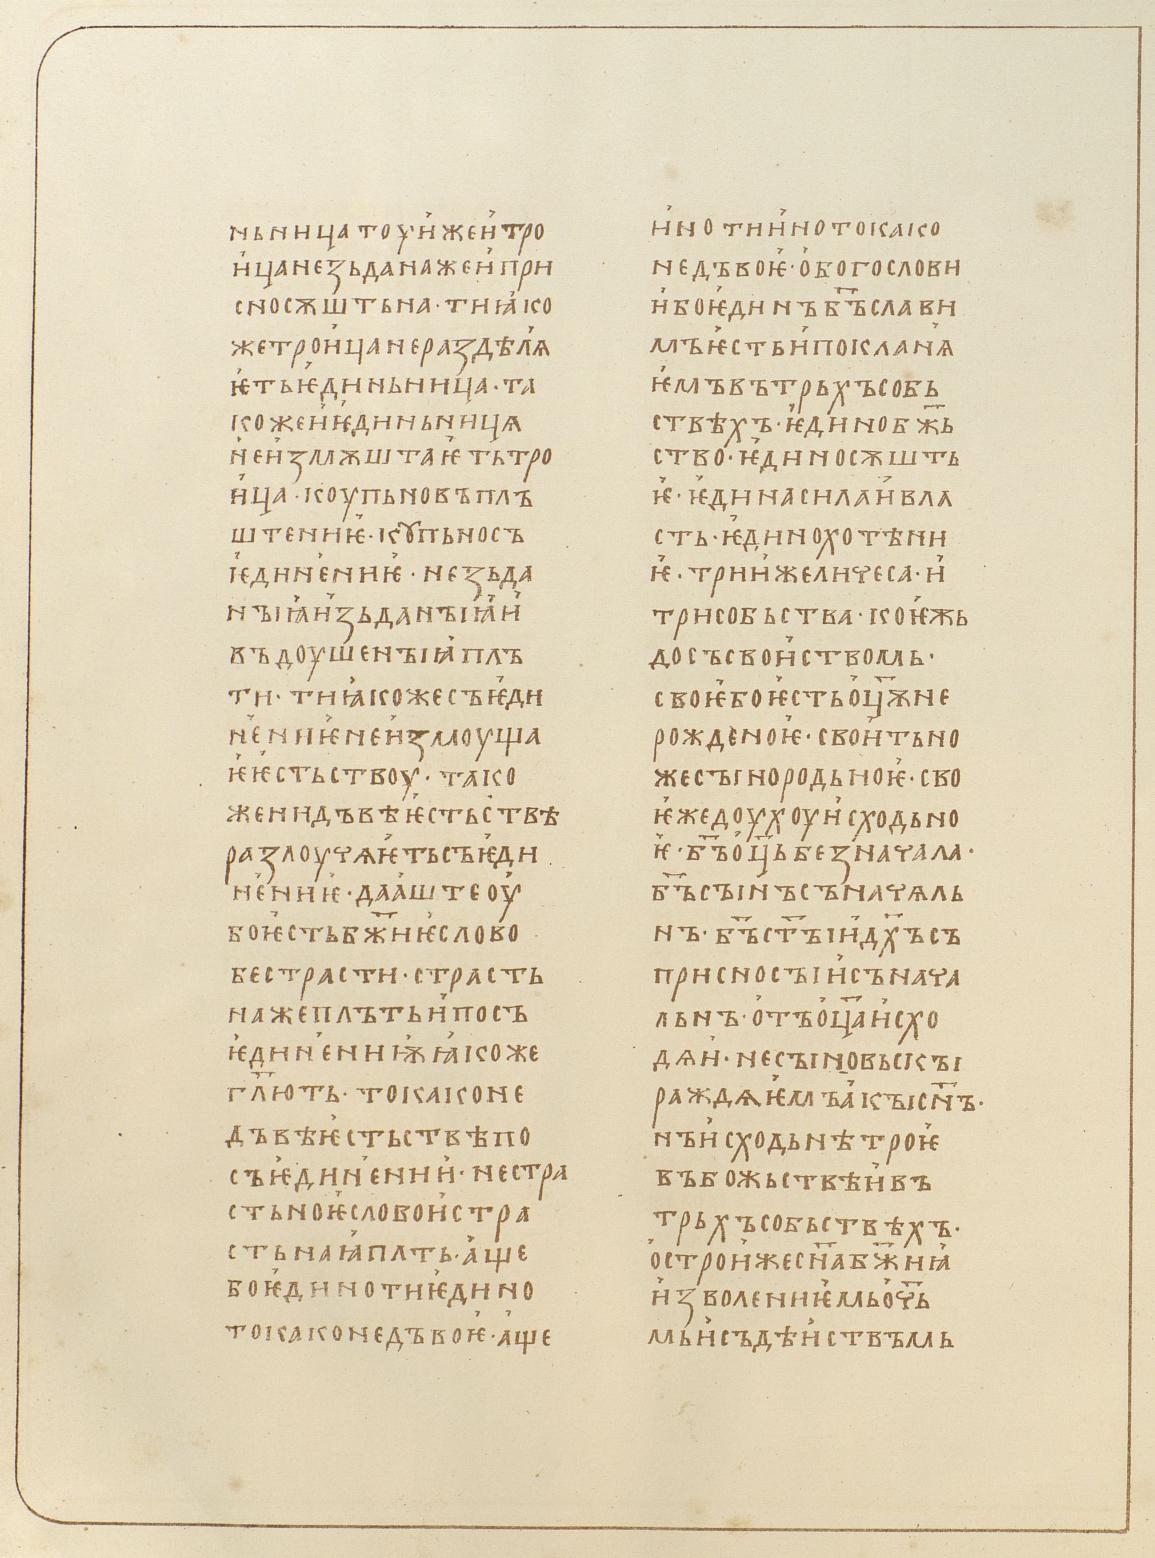 ньница тоу и҆ же и҆ тро
и҆ца незьдана же и҆ при
сносѫштьна · ти ꙗ҆ко
же трои҆ца не раздѣлꙗ
ѥ҆ть ѥ҆диньница · та
коже и҆ ѥ҆диньницѧ
не и҆змѫштаѥ҆ть тро
и҆ца · коупьно въпль
штениѥ҆ · кꙋпьно съ
ѥ҆динениѥ҆ · незьда
ныꙗ҆ и҆ зьданыꙗ҆ и҆
въдоушеныꙗ҆ плъ
ти · ти ꙗ҆коже съѥ҆ди
нениѥ҆ не и҆змоуща
ѥ҆ ѥ҆стьствоу · тако
же ни дъвѣ ѥ҆стьствѣ
разлоучѧѥ҆ть съѥ҆ди
нениѥ҆ · да а҆ште оу҆
бо ѥ҆сть бж҃иѥ҆ слово
бестрасти · страсть
на же плъть и҆ по съ
ѥ҆динениѭ҆ ꙗ҆коже
гл҃ють · то како не
дъвѣ ѥ҆стьствѣ по
съѥ҆динении҆ · нестра
стьноѥ҆ слово и҆ стра
стьнаꙗ҆ плть · а҆ще
бо ѥ҆дино ти ѥ҆дино
то како не дъвоѥ҆ · а҆ще
и҆но ти и҆но то како
не дъвоѥ҆ · о҆богослови
и҆бо ѥ҆динъ бъ҃ слави
мъ ѥ҆сть и҆ покланꙗ
ѥ҆мъ въ трьхъ собь
ствѣхъ · ѥ҆дино бжь҃
ство · ѥ҆диносѫшть
ѥ҆ · ѥ҆дина сила и҆ вла
сть · ѥ҆дино хотѣни
ѥ҆ · три и҆же личеса · и҆
три собьства · коѥ҆жь
до съ свои҆ствомь ·
своѥ҆ бо ѥ҆сть оц҃ѫ не
рожденоѥ҆ · свои҆ть но
же сꙑнородьноѥ҆ · сво
ѥ҆же доухоу и҆сходьно
ѥ҆ · бъ҃ оц҃ь безначала ·
бъ҃ сꙑнъ съначѧль
нъ · бъ҃ ст҃ꙑи дх҃ъ съ
присносꙑ и҆ съната
льнъ · отъ оц҃а и҆схо
дѧи҆ · не сꙑновьскꙑ
раждѧѥ҆мъ а҆кꙑ сн҃ъ ·
нъ и҆сходьнѣ троѥ҆
въ божьствѣ и҆ въ
трьхъ собьствѣхъ ·
о҆строи҆же сн҃а бж҃иꙗ҆
и҆зволениѥ҆мь оч҃ь
мь и҆ съдѣи҆ствъмь